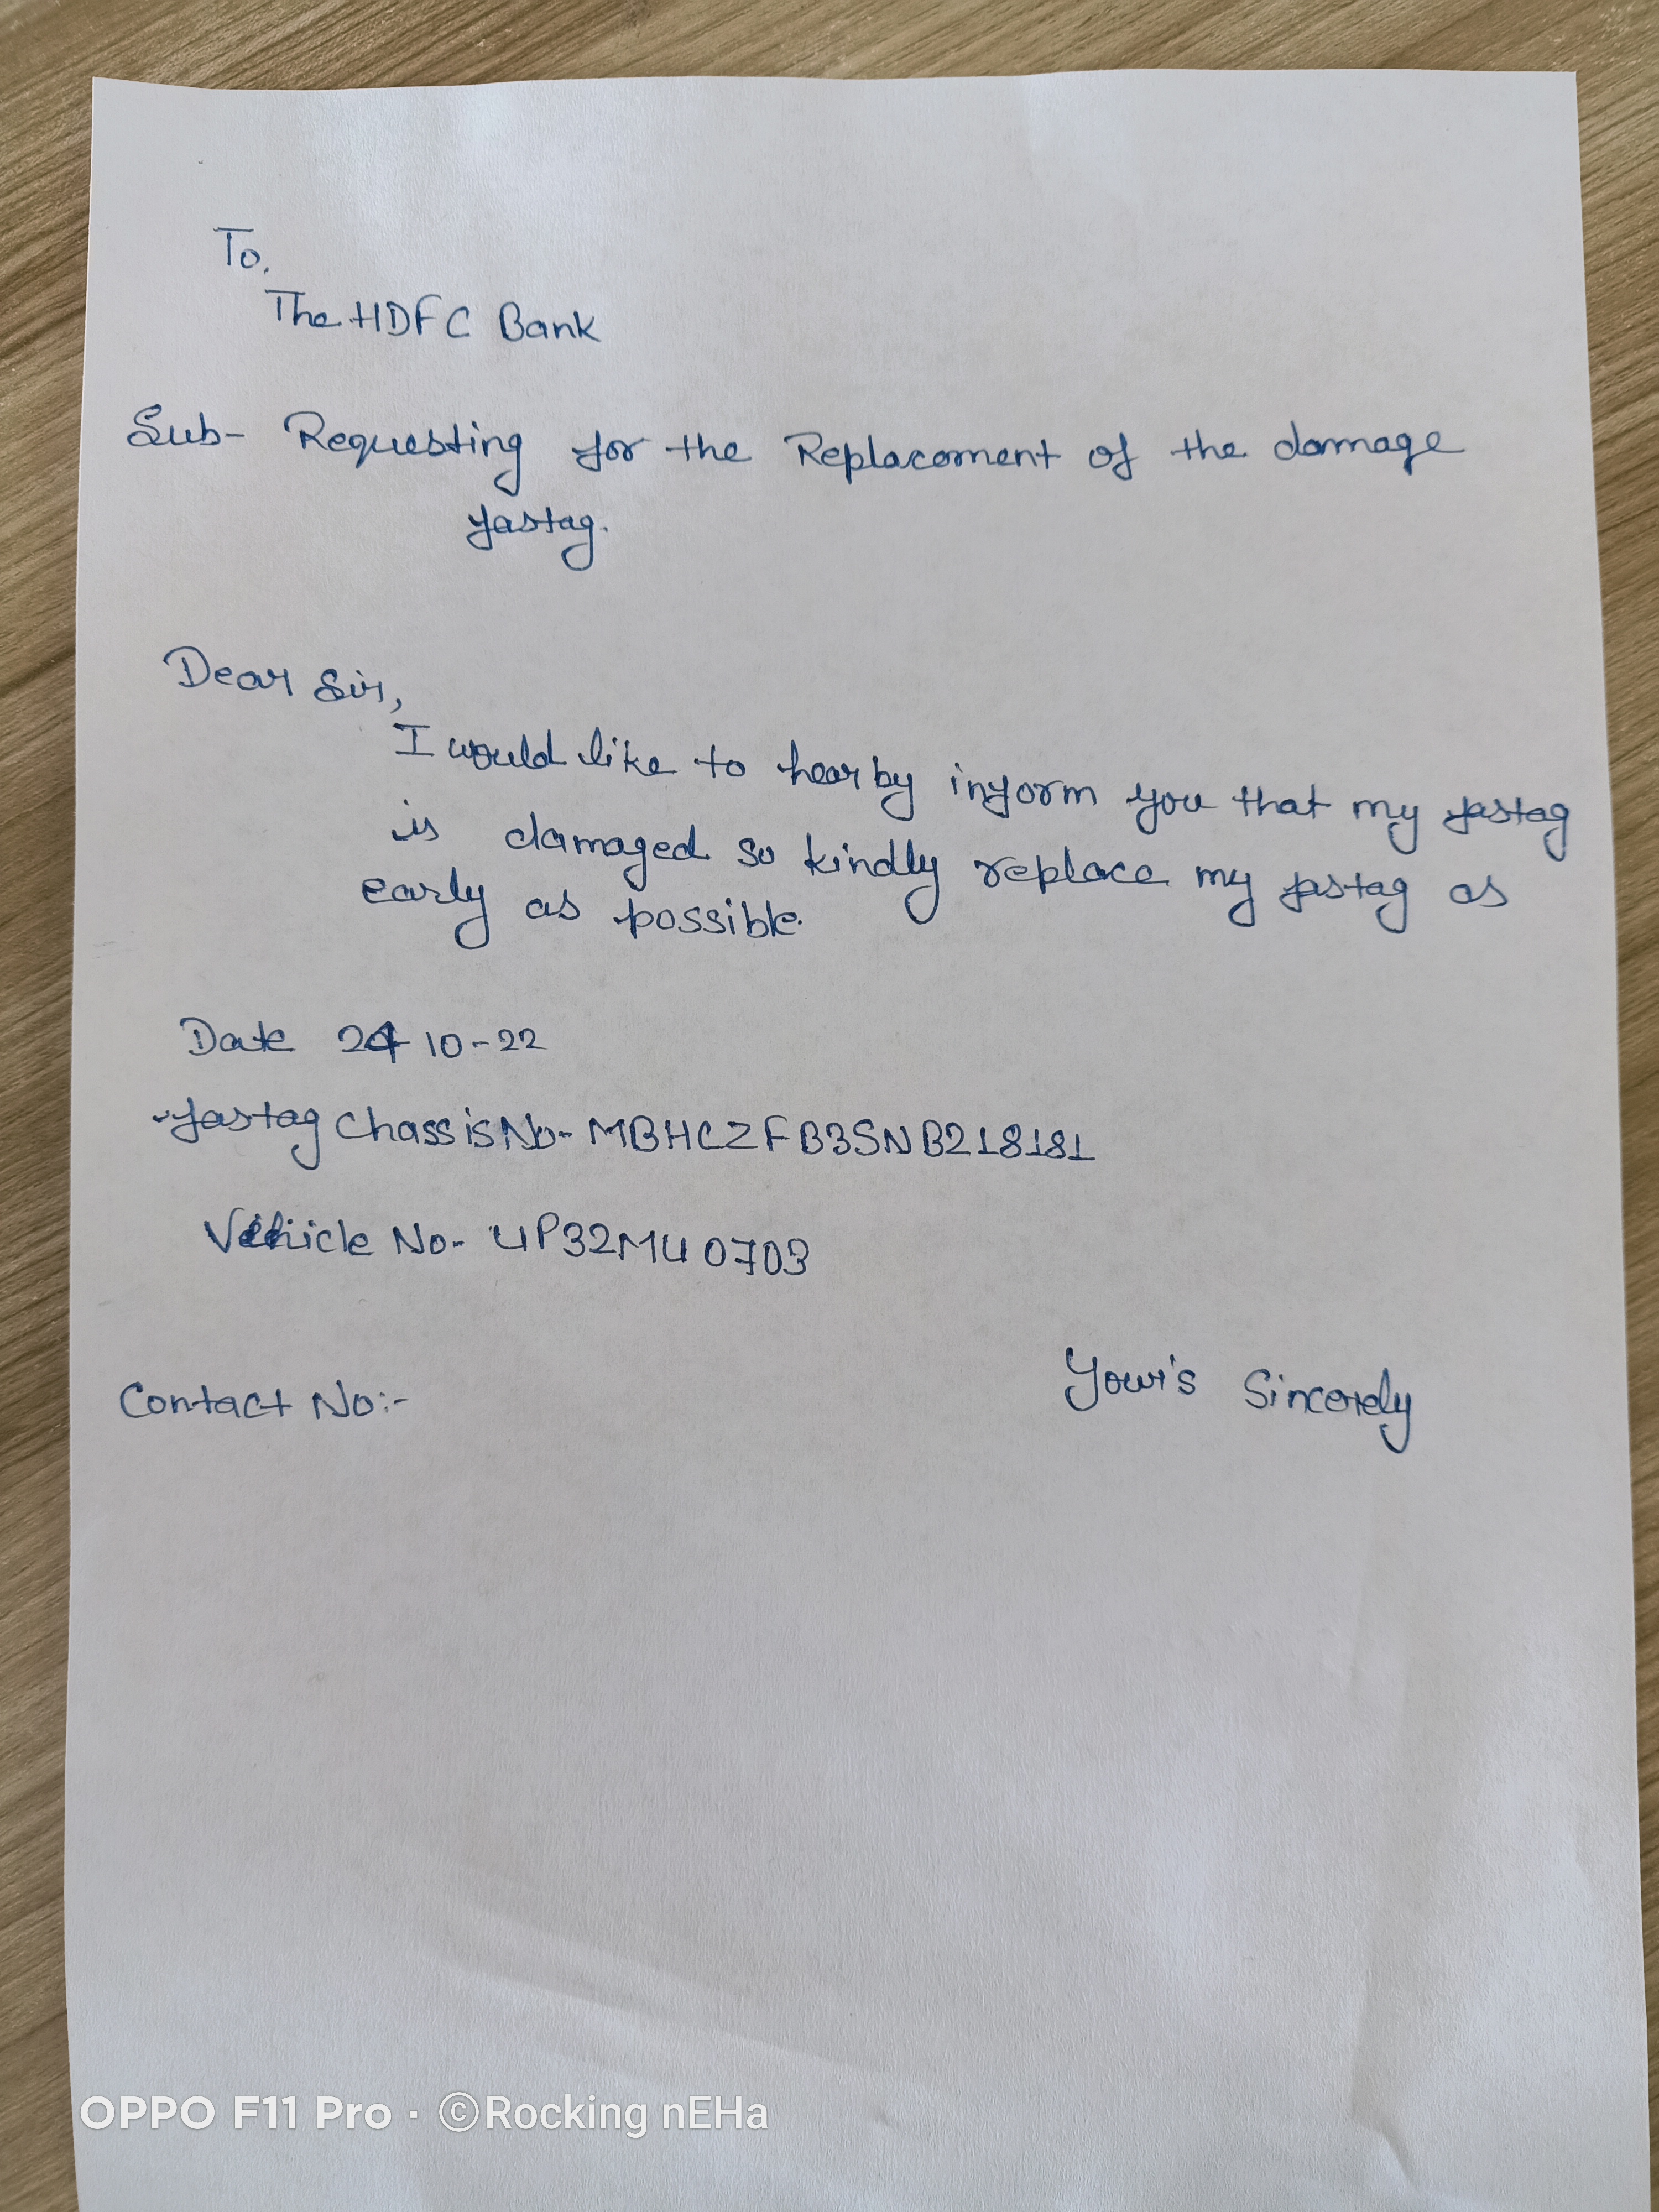 To,
The HDFC Bank
Sub- Requesting for the Replacement of the damage
fastag.
Dear Sir,
I would like to hearby inform you that my fastag
is damaged so kindly replace my fastag as
early as possible.
Date 24 10-22
-fastag Chassis No- MBHCZFB3SNB218181
Vehicle No- UP32MU0703
Your's Sincerely
Contact No:-
OPPO F11 Pro · ©Rocking nEHa